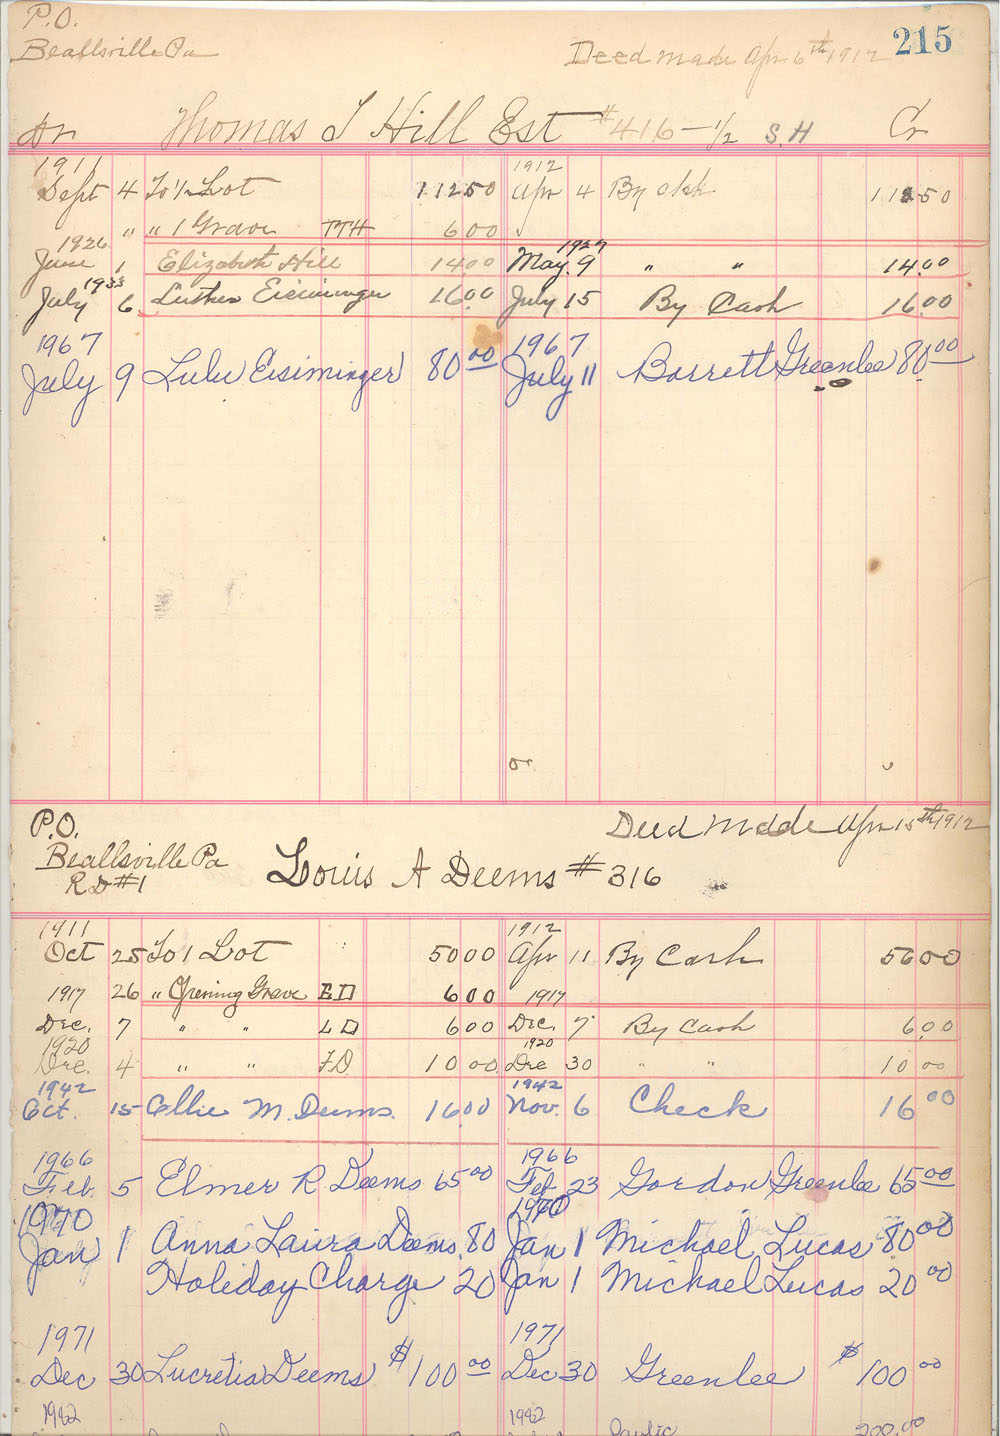 P.O.
Beallsville Pa
Deed made Apr 6th 1912 215
Dr Thomas I Hill Est #416-1/2 S.H Cr
1911 1912
Sept 4 To ½ Lot 112 50 Apr 4 By chk 118 50
" " 1 Grave TTH 6 00
1926 1927
June 1 Elizabeth Hill 14 00 May 9 " " 14.00
1933
July 6 Luther Eisiminger 16.00 July 15 By Cash 16.00
1967 1967
July 9 Lulu Eisiminger 80 00 July 11 Barrett Greenlee 80 00
or
P.O.
Beallsville Pa
R D #1
Deed Made Apr 15th 1912
Louis A Deems # 316
1911 1912
Oct 25 To 1 Lot 50 00 Apr 11 By Cash 56 00
26 " Opening Grave E D 6 00
1917 1917
Dec. 7 " " L D 6 00 Dec. 7 By Cash 6.00
1920 1920
Dec. 4 " " F.D. 10 00 Dec 30 " " 10 00
1942 1942
Oct. 15 Ellie M. Deems. 16 00 Nov. 6 Check 16 00
1966 1966
Feb. 5 Elmer R. Deems 65 00 Feb 23 Gordon Greenlee 65 00
1970 1970
Jan 1 Anna Laura Deems. 80 Jan 1 Michael Lucas 80 00
Holiday Charge 20 Jan 1 Michael Lucas 20 00
1971 1971
Dec 30 Lucretia Deems $100 00 Dec 30 Greenlee $100 00
1982 1982
200.00